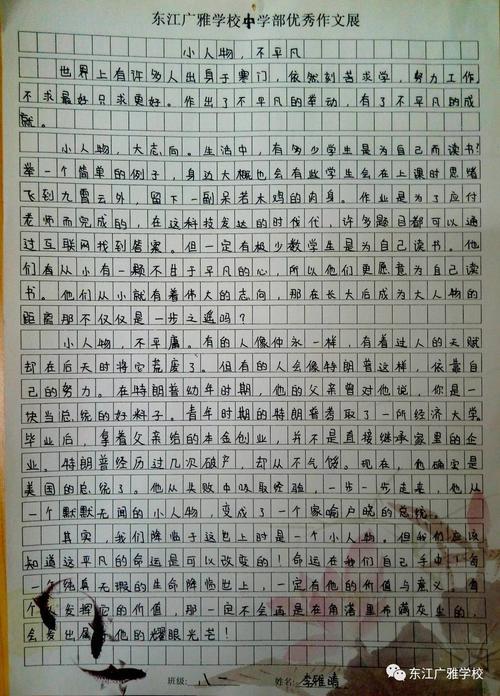 东江广雅学校中学部优秀作文展
小人物，不平凡
世界上有许多人出身于寒门，依然刻苦求学，努力工作，
不求最好只求更好。作出了不平凡的举动，有了不平凡的成
就。
小人物，大志向。生活中，有多少学生是为自己而读书？
举一个简单的例子，身边大概也会有些学生会在上课时思绪
飞到九霄云外，留下一副呆若木鸡的肉身。作业是为了应付
老师而完成的，在这科技发达的时代，许多题目都可以通
过互联网找到答案。但一定有极少数学生是为自己读书。他
们有从小有一颗不甘于平凡的心，所以他们更愿意为自己读
书。他们从小就有着伟大的志向，那在长大后成为大人物的
距离那不仅仅是一步之遥吗？
小人物，不平庸。有的人像仲永一样，有着过人的天赋
却在后天时将它荒废了。但有的人会像特朗普这样，依靠自
己的努力。在特朗普幼年时期，他的父亲曾对他说，你是一
块当总统的好料子。青年时期的特朗普考取了一所经济大学。
毕业后，拿着父亲给的本金创业，并不是直接继承家里的企
业。特朗普经历过几次破产，却从不气馁。现在，他确实是
美国的总统了。他从失败中吸取经验，一步一步走来，他从
一个默默无闻的小人物，变成了一个家喻户晓的总统。
其实，我们降临于这世上时是一个小人物。但我们应该
知道这平凡的命运是可以改变的！命运在我们自己手中！每
一个纯真无瑕的生命降临世上，一定有他的价值与意义，有
个 发挥它的价值，那一定不会再是在角落里布满灰尘的，
会发出属于他的耀眼光芒！
班级：八一 姓名：李雅晴
东江广雅学校